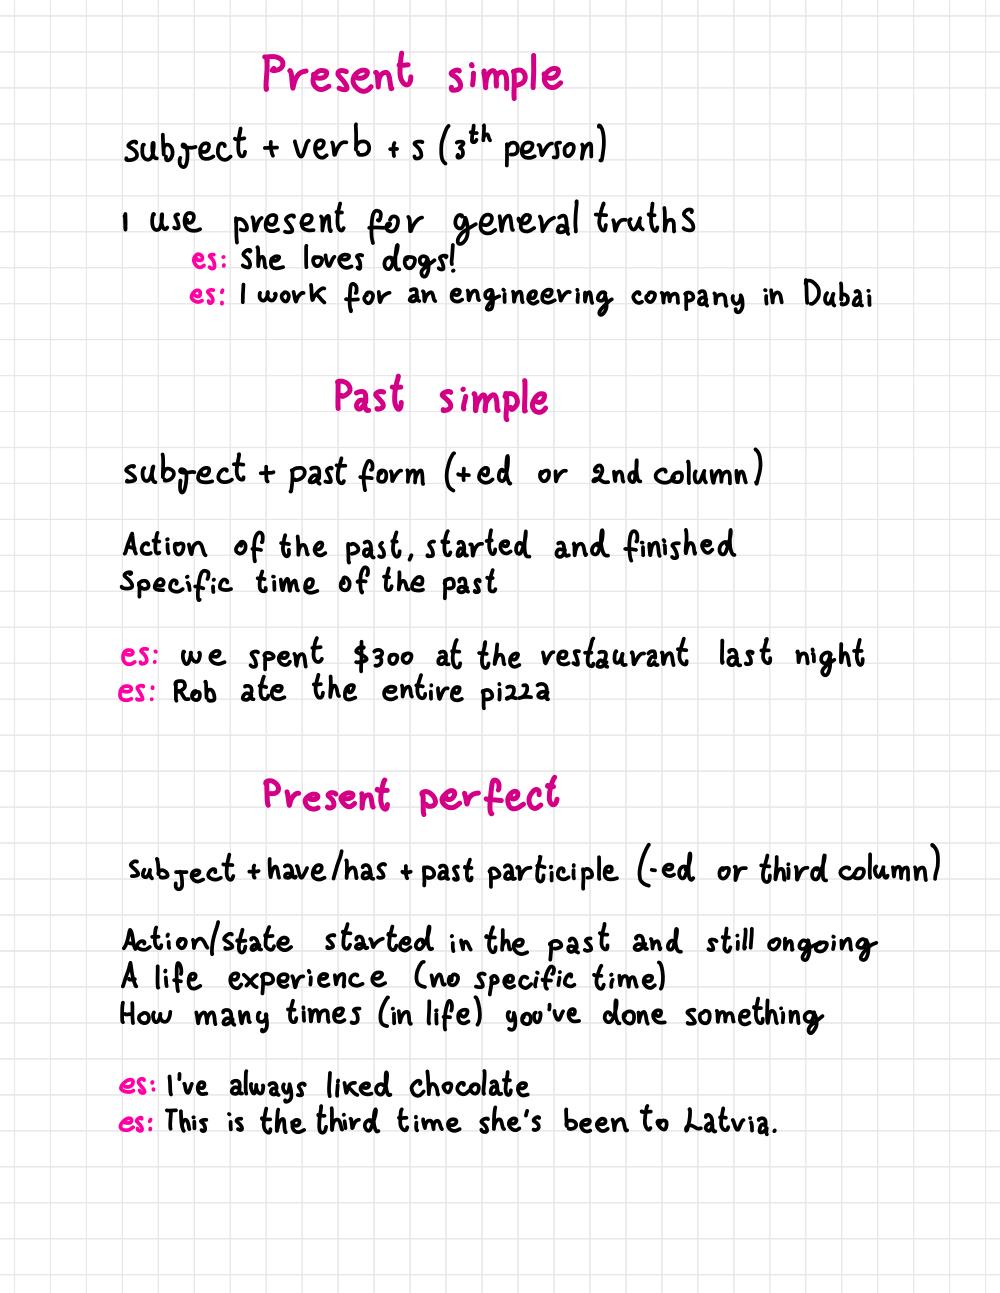 Present simple
subject + verb + s (3th person)
I use present for general truths
es: She loves dogs!
es: I work for an engineering company in Dubai
Past simple
subject + past form (+ed or 2nd column)
Action of the past, started and finished
Specific time of the past
es: we spent $300 at the restaurant last night
es: Rob ate the entire pizza
Present perfect
subject + have/has + past participle (-ed or third column)
Action/state started in the past and still ongoing
A life experience (no specific time)
How many times (in life) you've done something
es: I've always liked chocolate
es: This is the third time she's been to Latvia.